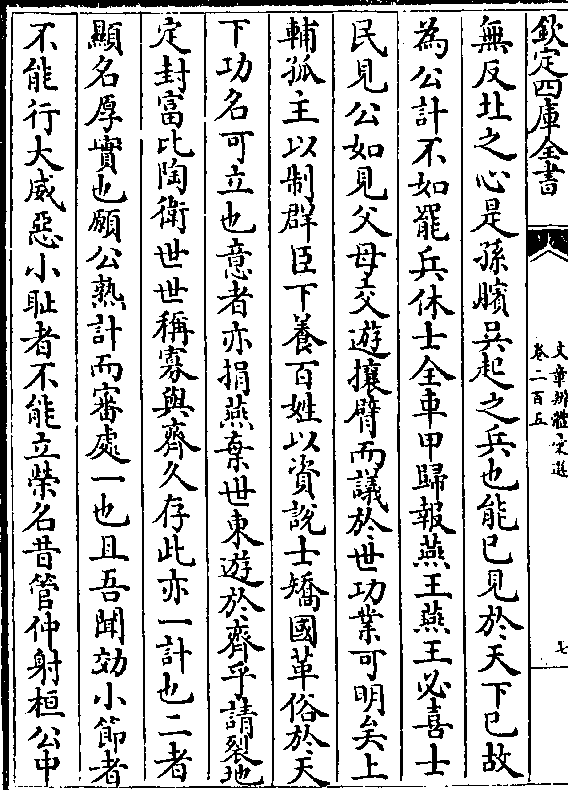 欽定四庫全書
文章辨體彙選
卷二百五
七
無反北之心是孫臏吳起之兵也能已見於天下已故
為公計不如罷兵休士全車甲歸報燕王燕王必喜士
民見公如見父母交遊攘臂而議於世功業可明矣上
輔孤主以制群臣下養百姓以資說士矯國革俗於天
下功名可立也意者亦捐燕棄世東遊於齊乎請裂地
定封富比陶衛世世稱寡與齊久存此亦一計也二者
顯名厚實也願公熟計而審處一也且吾聞效小節者
不能行大威惡小耻者不能立榮名昔管仲射桓公中